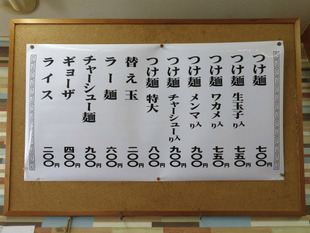 つけ麺 七〇〇
つけ麺 生玉子入り 七五〇
つけ麺 ワカメ入り 七五〇
つけ麺 メンマ入り 九〇〇
つけ麺 チャーシュー入り 九〇〇
つけ麺 特大 八〇〇
替え玉 二〇〇
ラー麺 六〇〇
チャーシュー麺 九〇〇
ギョーザ 四〇〇
ライス 二〇〇